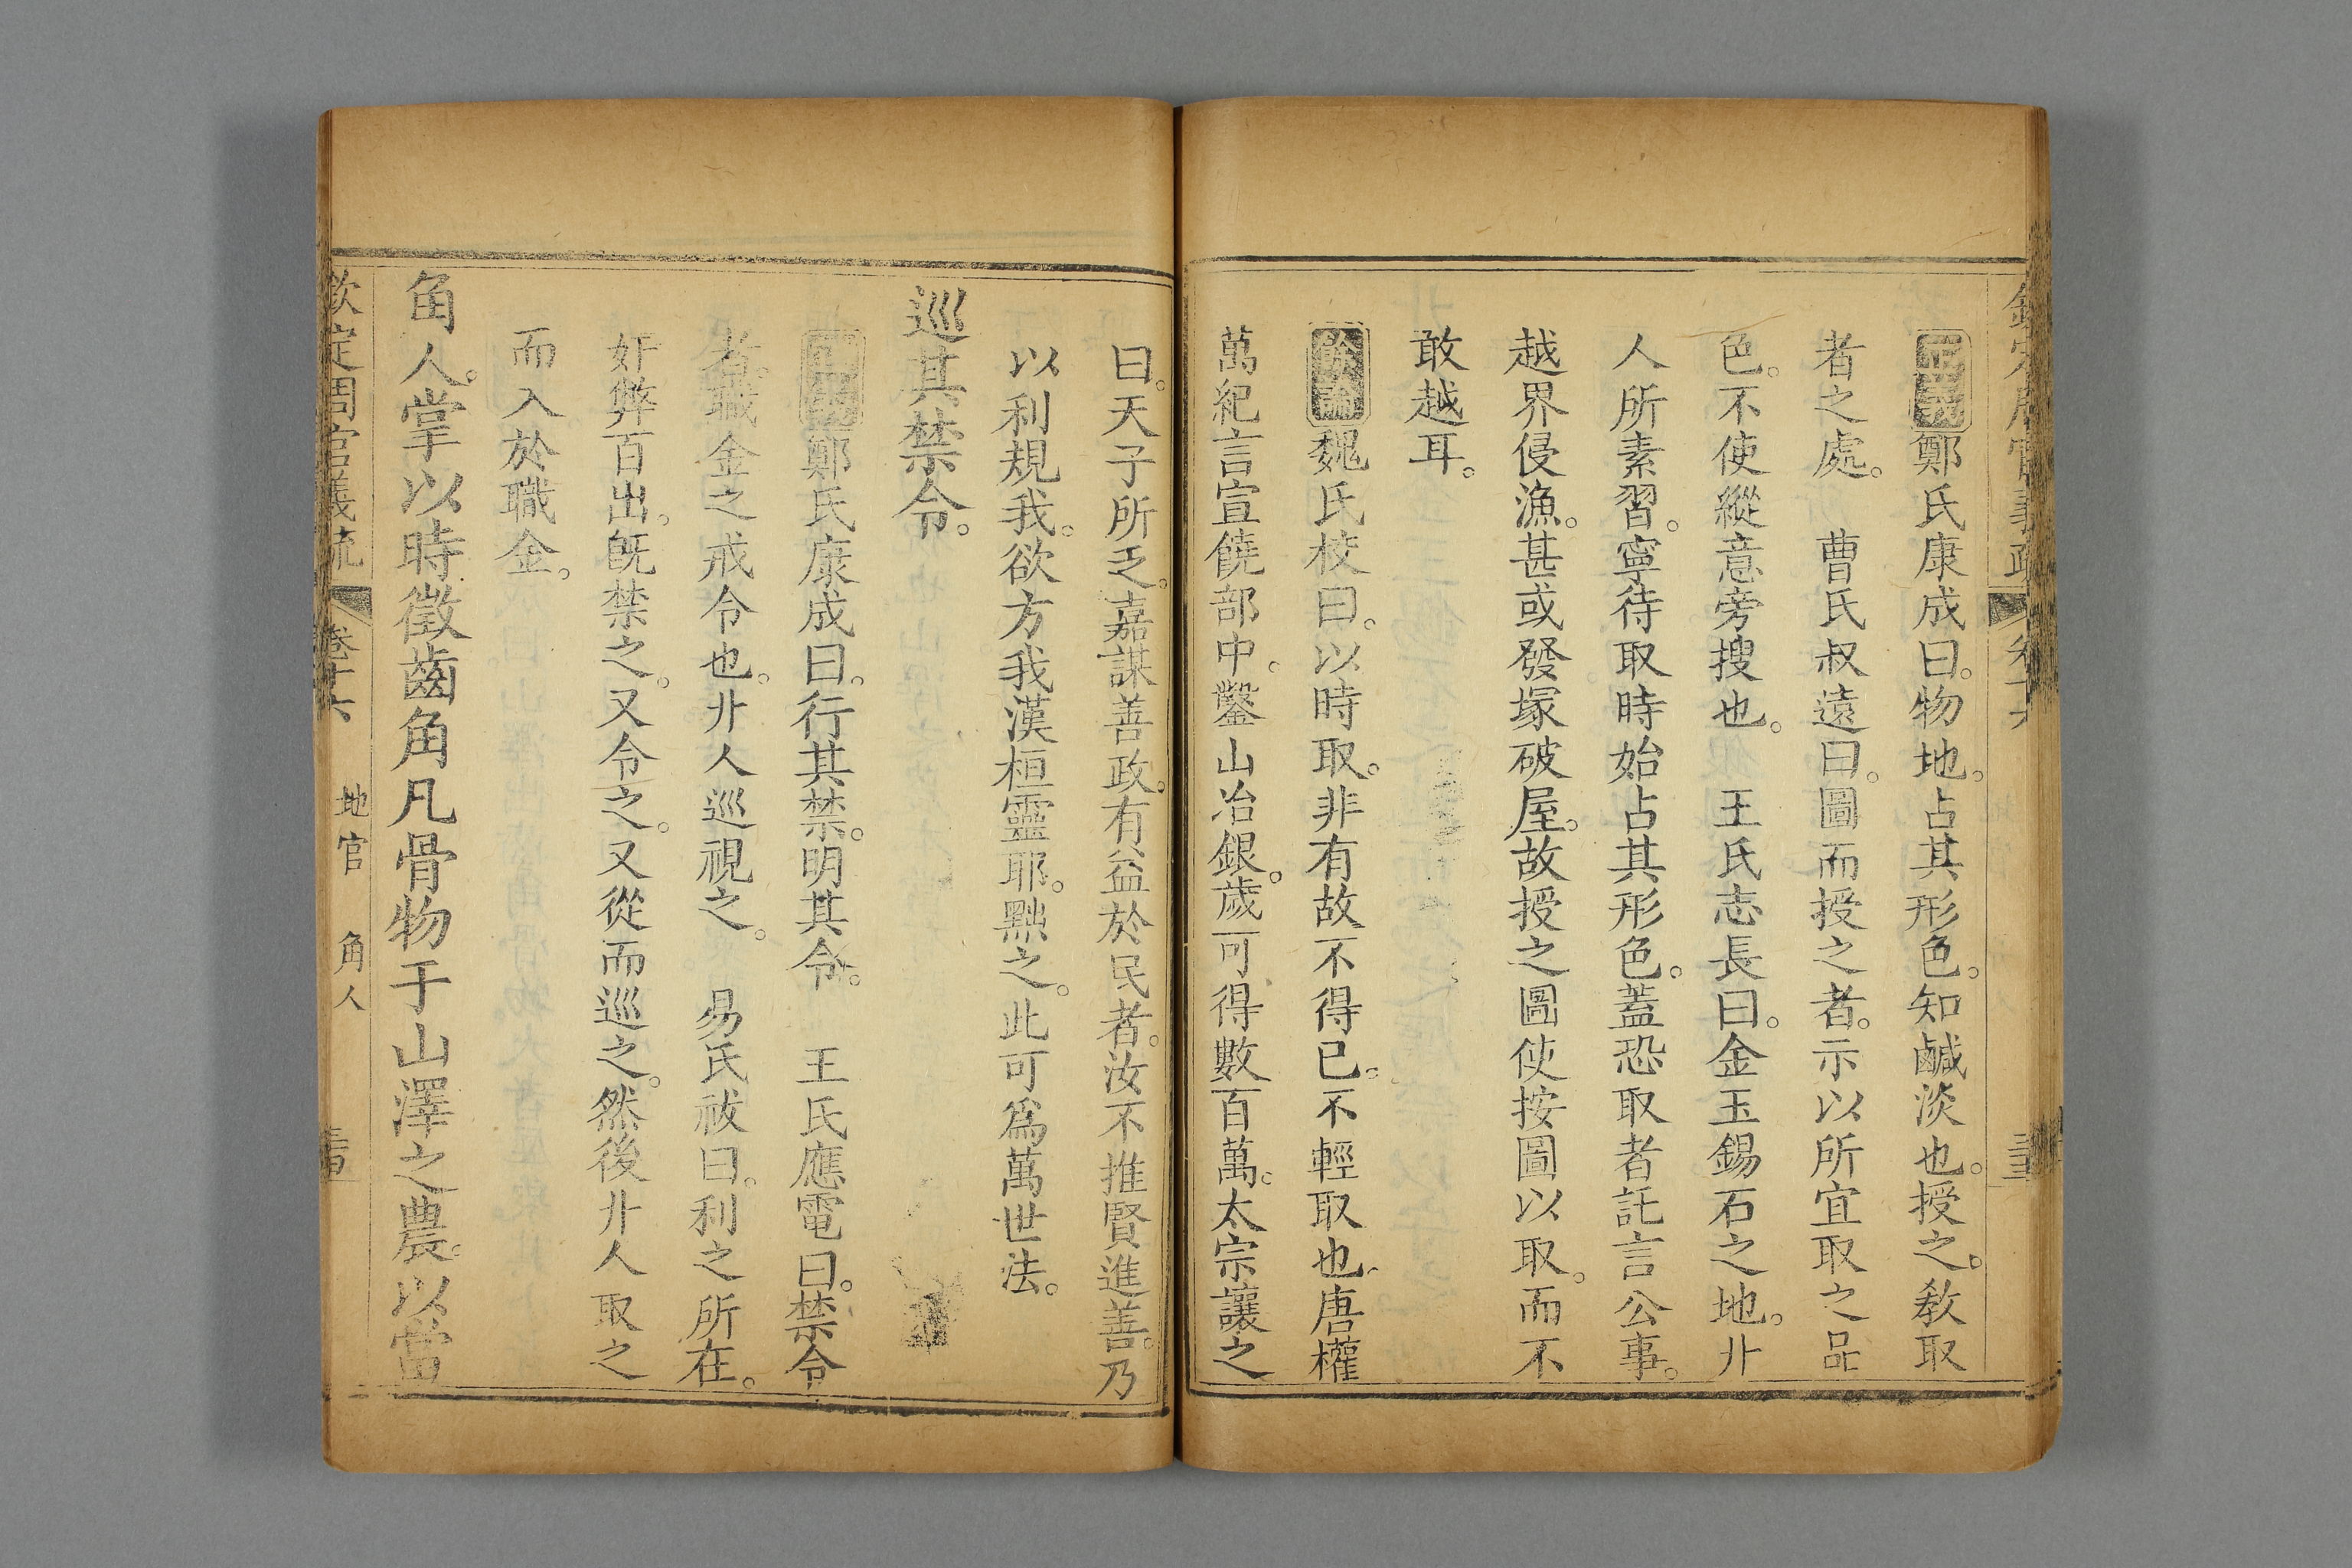 欽定周官義疏 卷十六 三十三
正義鄭氏康成曰。物地。占其形色。知鹹淡也。授之。教取
者之處。 曹氏叔遠曰。圖而授之者。示以所宜取之品
色。不使縱意旁搜也。 王氏志長曰。金玉錫石之地。卝
人所素習。寧待取時始占其形色。蓋恐取者託言公事。
越界侵漁。甚或發塚破屋。故授之圖使按圖以取。而不
敢越耳。
餘論魏氏校曰。以時取。非有故不得已。不輕取也。唐權
萬紀言宣饒部中。鑿山冶銀。歲可得數百萬。太宗讓之
曰。天子所乏。嘉謀善政。有益於民者。汝不推賢進善。乃
以利規我。欲方我漢桓靈耶。黜之。此可為萬世法。
巡其禁令。
正義鄭氏康成曰。行其禁。明其令。 王氏應電曰。禁令
者。職金之戒令也。卝人巡視之。 易氏祓曰。利之所在。
奸弊百出。旣禁之。又令之。又從而巡之。然後卝人取之
而入於職金。
角人。掌以時徵齒角凡骨物于山澤之農。以當
欽定周官義疏 卷十六 地官 角人 三十四